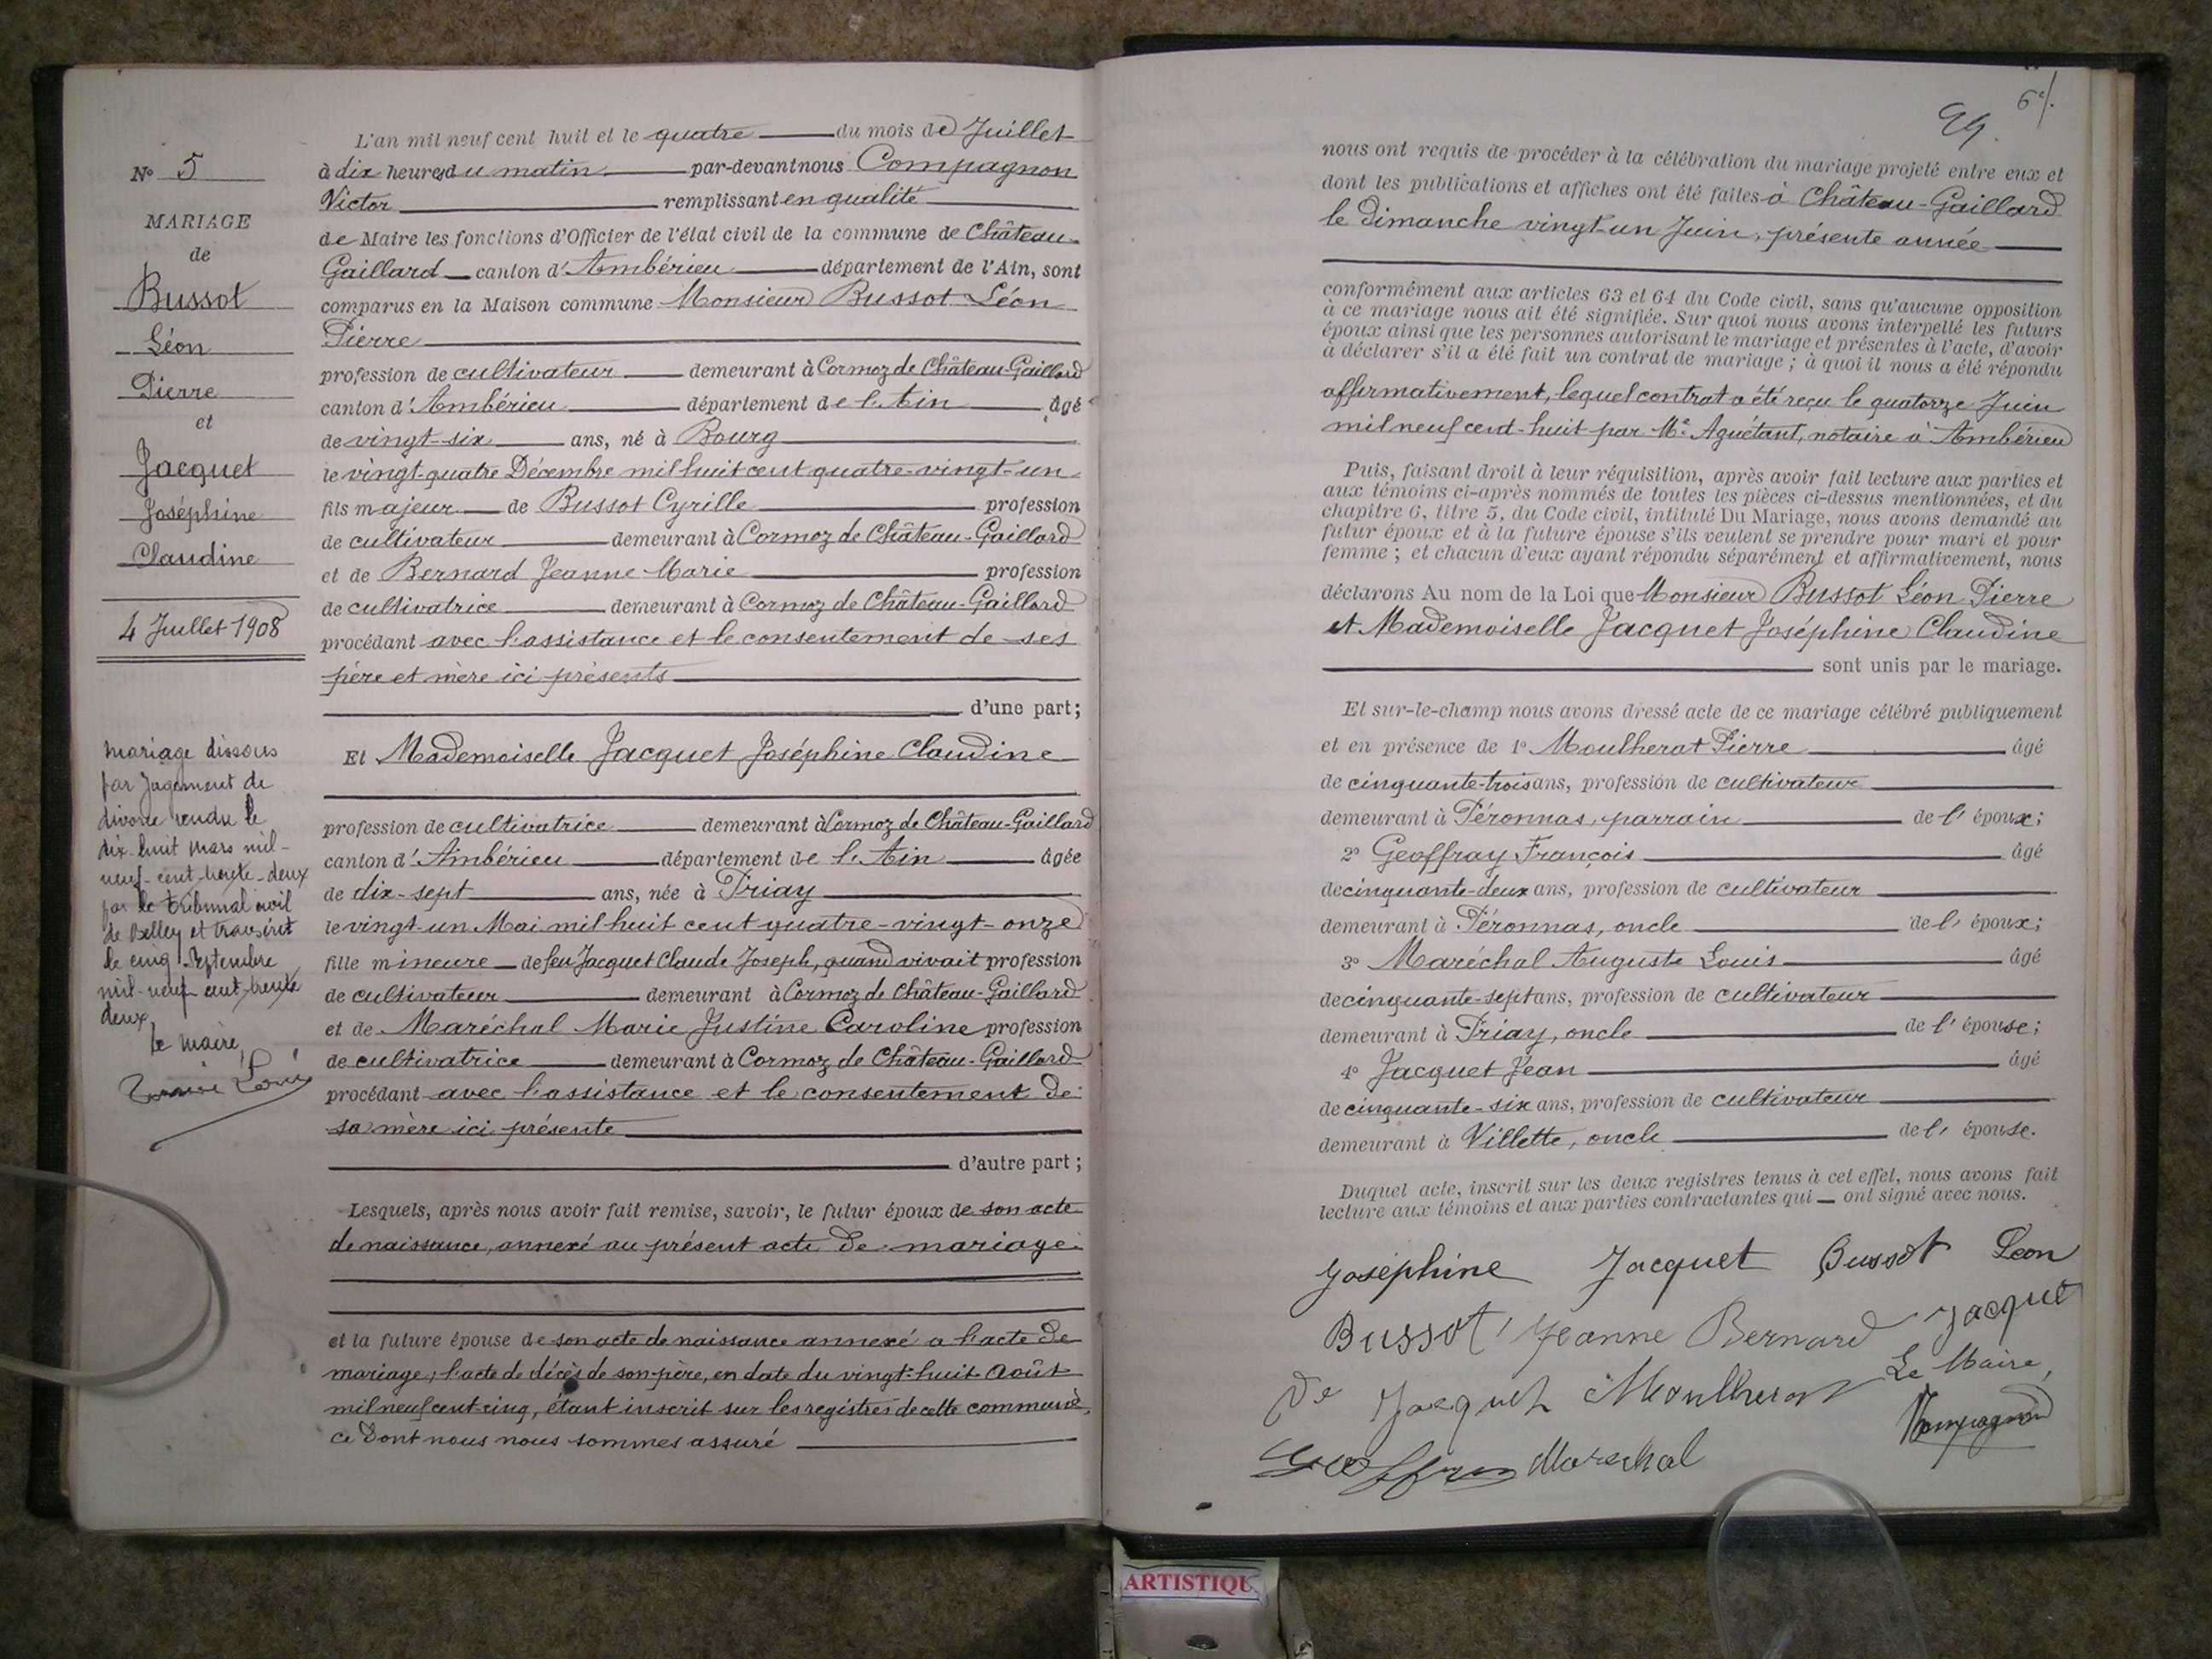 Nº 5
MARIAGE
de
Bussot
Léon
Pierre
et
Jacquet
Joséphine
Claudine
4 Juillet 1908
Mariage dissous
par Jugement de
divorce rendu le
dix-huit Mars mil-
neuf-cent-trente-deux
par le tribunal civil
de Belley et transcrit
le cinq Septembre
mil-neuf cent-trente
deux.
Le Maire,
L'an mil neuf cent huit et le quatre du mois de Juillet
à dix heures du matin par-devant nous Compagnon
Victor remplissant en qualité
de Maire les fonctions d'Officier de l'état civil de la commune de Château-
Gaillard canton d'Ambérieu département de l'Ain, sont
comparus en la Maison commune Monsieur Bussot Léon
Pierre
profession de cultivateur demeurant à Cormoz de Château-Gaillard
canton d'Ambérieu département de l'Ain âgé
de vingt-six ans, né à Bourg
le vingt-quatre Décembre mil huit cent quatre-vingt-un
fils majeur de Bussot Cyrille profession
de cultivateur demeurant à Cormoz de Château-Gaillard
et de Bernard Jeanne-Marie profession
de cultivatrice demeurant à Cormoz de Château-Gaillard
procédant avec l'assistance et le consentement de ses
père et mère ici présents
d'une part;
Et Mademoiselle Jacquet Joséphine Claudine
profession de cultivatrice demeurant à Cormoz de Château-Gaillard
canton d'Ambérieu département de l'Ain âgée
de dix-sept ans, née à Priay
le vingt-un Mai mil huit cent quatre-vingt-onze
fille mineure de feu Jacquet Claude Joseph, quand vivait profession
de cultivateur demeurant à Cormoz de Château-Gaillard
et de Maréchal Marie Justine Caroline profession
de cultivatrice demeurant à Cormoz de Château-Gaillard
procédant avec l'assistance et le consentement de
sa mère ici présente
d'autre part;
Lesquels, après nous avoir fait remise, savoir, le futur époux de son acte
de naissance, annexé au présent acte de mariage
et la future épouse de son acte de naissance annexé a l'acte de
mariage; l'acte de décès de son père, en date du vingt-huit Août
mil neuf cent cinq, étant inscrit sur les registres de cette commune,
ce dont nous nous sommes assuré
nous ont requis de procéder à la célébration du mariage projeté entre eux et
dont les publications et affiches ont été faites à Château-Gaillard
le Dimanche vingt-un Juin, présente année
conformément aux articles 63 et 64 du Code civil, sans qu'aucune opposition
à ce mariage nous ait été signifiée. Sur quoi nous avons interpellé les futurs
époux ainsi que les personnes autorisant le mariage et présentes à l'acte, d'avoir
à déclarer s'il a été fait un contrat de mariage; à quoi il nous a été répondu
affirmativement, lequel contrat a été reçu le quatorze Juin
mil neuf cent-huit par Me Aguétant, notaire à Ambérieu
Puis, faisant droit à leur réquisition, après avoir fait lecture aux parties et
aux témoins ci-après nommés de toutes les pièces ci-dessus mentionnées, et du
chapitre 6, titre 5, du Code civil, intitulé Du Mariage, nous avons demandé au
futur époux et à la future épouse s'ils veulent se prendre pour mari et pour
femme; et chacun d'eux ayant répondu séparément et affirmativement, nous
déclarons Au nom de la Loi que Monsieur Bussot Léon Pierre
et Mademoiselle Jacquet Joséphine Claudine
sont unis par le mariage.
Et sur-le-champ nous avons dressé acte de ce mariage célébré publiquement
et en présence de 1º Moulherat Pierre âgé
de cinquante-trois ans, profession de cultivateur
demeurant à Péronnas, parrain de l'époux;
2º Geoffray François âgé
de cinquante-deux ans, profession de cultivateur
demeurant à Péronnas, oncle de l'époux;
3º Maréchal Auguste Louis âgé
de cinquante-sept ans, profession de cultivateur
demeurant à Priay, oncle de l'épouse;
4º Jacquet Jean âgé
de cinquante-six ans, profession de cultivateur
demeurant à Villette, oncle de l'épouse.
Duquel acte, inscrit sur les deux registres tenus à cet effet, nous avons fait
lecture aux témoins et aux parties contractantes qui ont signé avec nous.
Joséphine Jacquet Bussot Léon
Bussot Jeanne Bernard Jacquet
Ve Jacquet Moulherat Le Maire,
Geoffray Maréchal Compagnon
ARTISTIQU